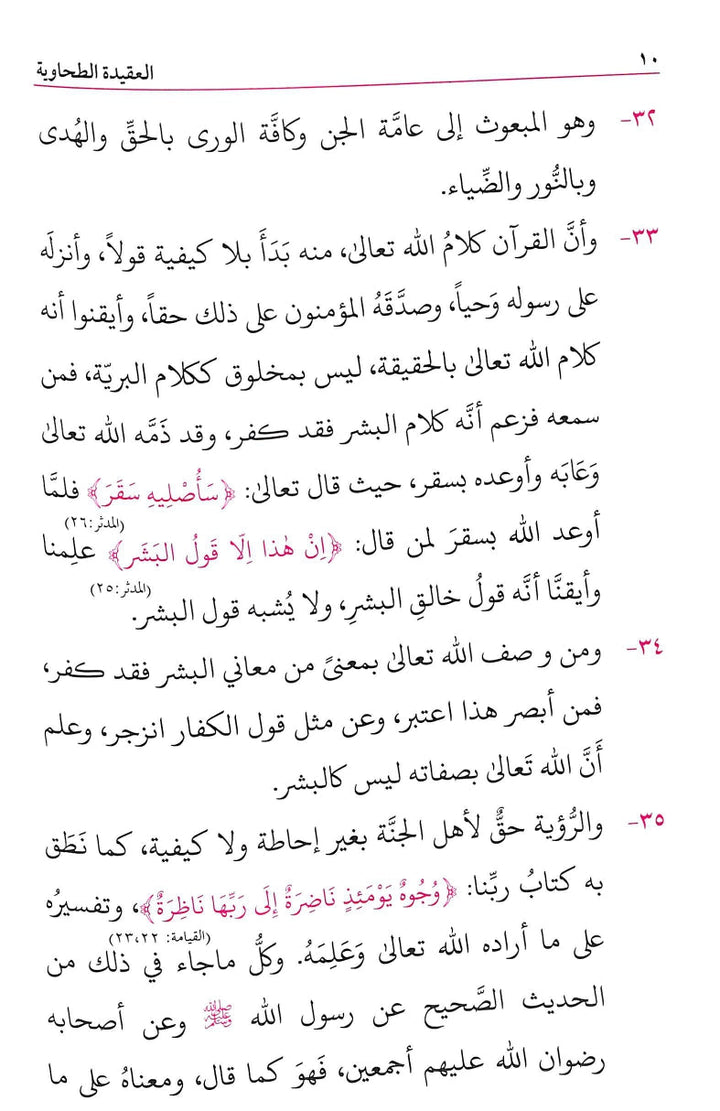 ١٠ العقيدة الطحاوية
٣٢- وهو المبعوث إلى عامَّة الجن وكافَّة الورى بالحقِّ والهُدى
وبالنُّور والضِّياء.
٣٣- وأنَّ القرآن كلامُ الله تعالىٰ، منه بَدَأَ بلا كيفية قولاً، وأنزلَه
على رسوله وَحياً، وصدَّقَهُ المؤمنون على ذلك حقاً، وأيقنوا أنه
كلام الله تعالىٰ بالحقيقة، ليس بمخلوق ككلام البريّة، فمن
سمعه فزعم أنَّه كلام البشر فقد كفر، وقد ذَمَّه الله تعالىٰ
وَعَابَه وأوعده بسقر، حيث قال تعالىٰ: ﴿سَأُصْلِيهِ سَقَرَ﴾ فلمَّا
(المدثر:٢٦)
أوعد الله بسقرَ لمن قال: ﴿اِنْ هٰذا اِلَا قَولُ البَشَر﴾ علِمنا
(المدثر:٢٥)
وأيقنَّا أنَّه قولُ خالقِ البشرِ، ولا يُشبه قول البشر.
٣٤- ومن و صف الله تعالىٰ بمعنىً من معاني البشر فقد كفر،
فمن أبصر هذا اعتبر، وعن مثل قول الكفار انزجر، وعلم
أَنَّ الله تَعالىٰ بصفاته ليس كالبشر.
٣٥- والرُّؤية حقٌّ لأهل الجنَّة بغير إحاطة ولا كيفية، كما نَطَق
به كتابُ ربِّنا: ﴿وُجُوهٌ يَوْمَئِذٍ نَاضِرَةٌ إِلَى رَبِّهَا نَاظِرَةٌ﴾، وتفسيرُه
(القيامة: ٢٣،٢٢)
على ما أراده الله تعالىٰ وَعَلِمَهُ. وكلُّ ماجاء في ذلك من
الحديث الصَّحيح عن رسول الله ﷺ وعن أصحابه
رضوان الله عليهم أجمعين، فَهوَ كما قال، ومعناهُ على ما